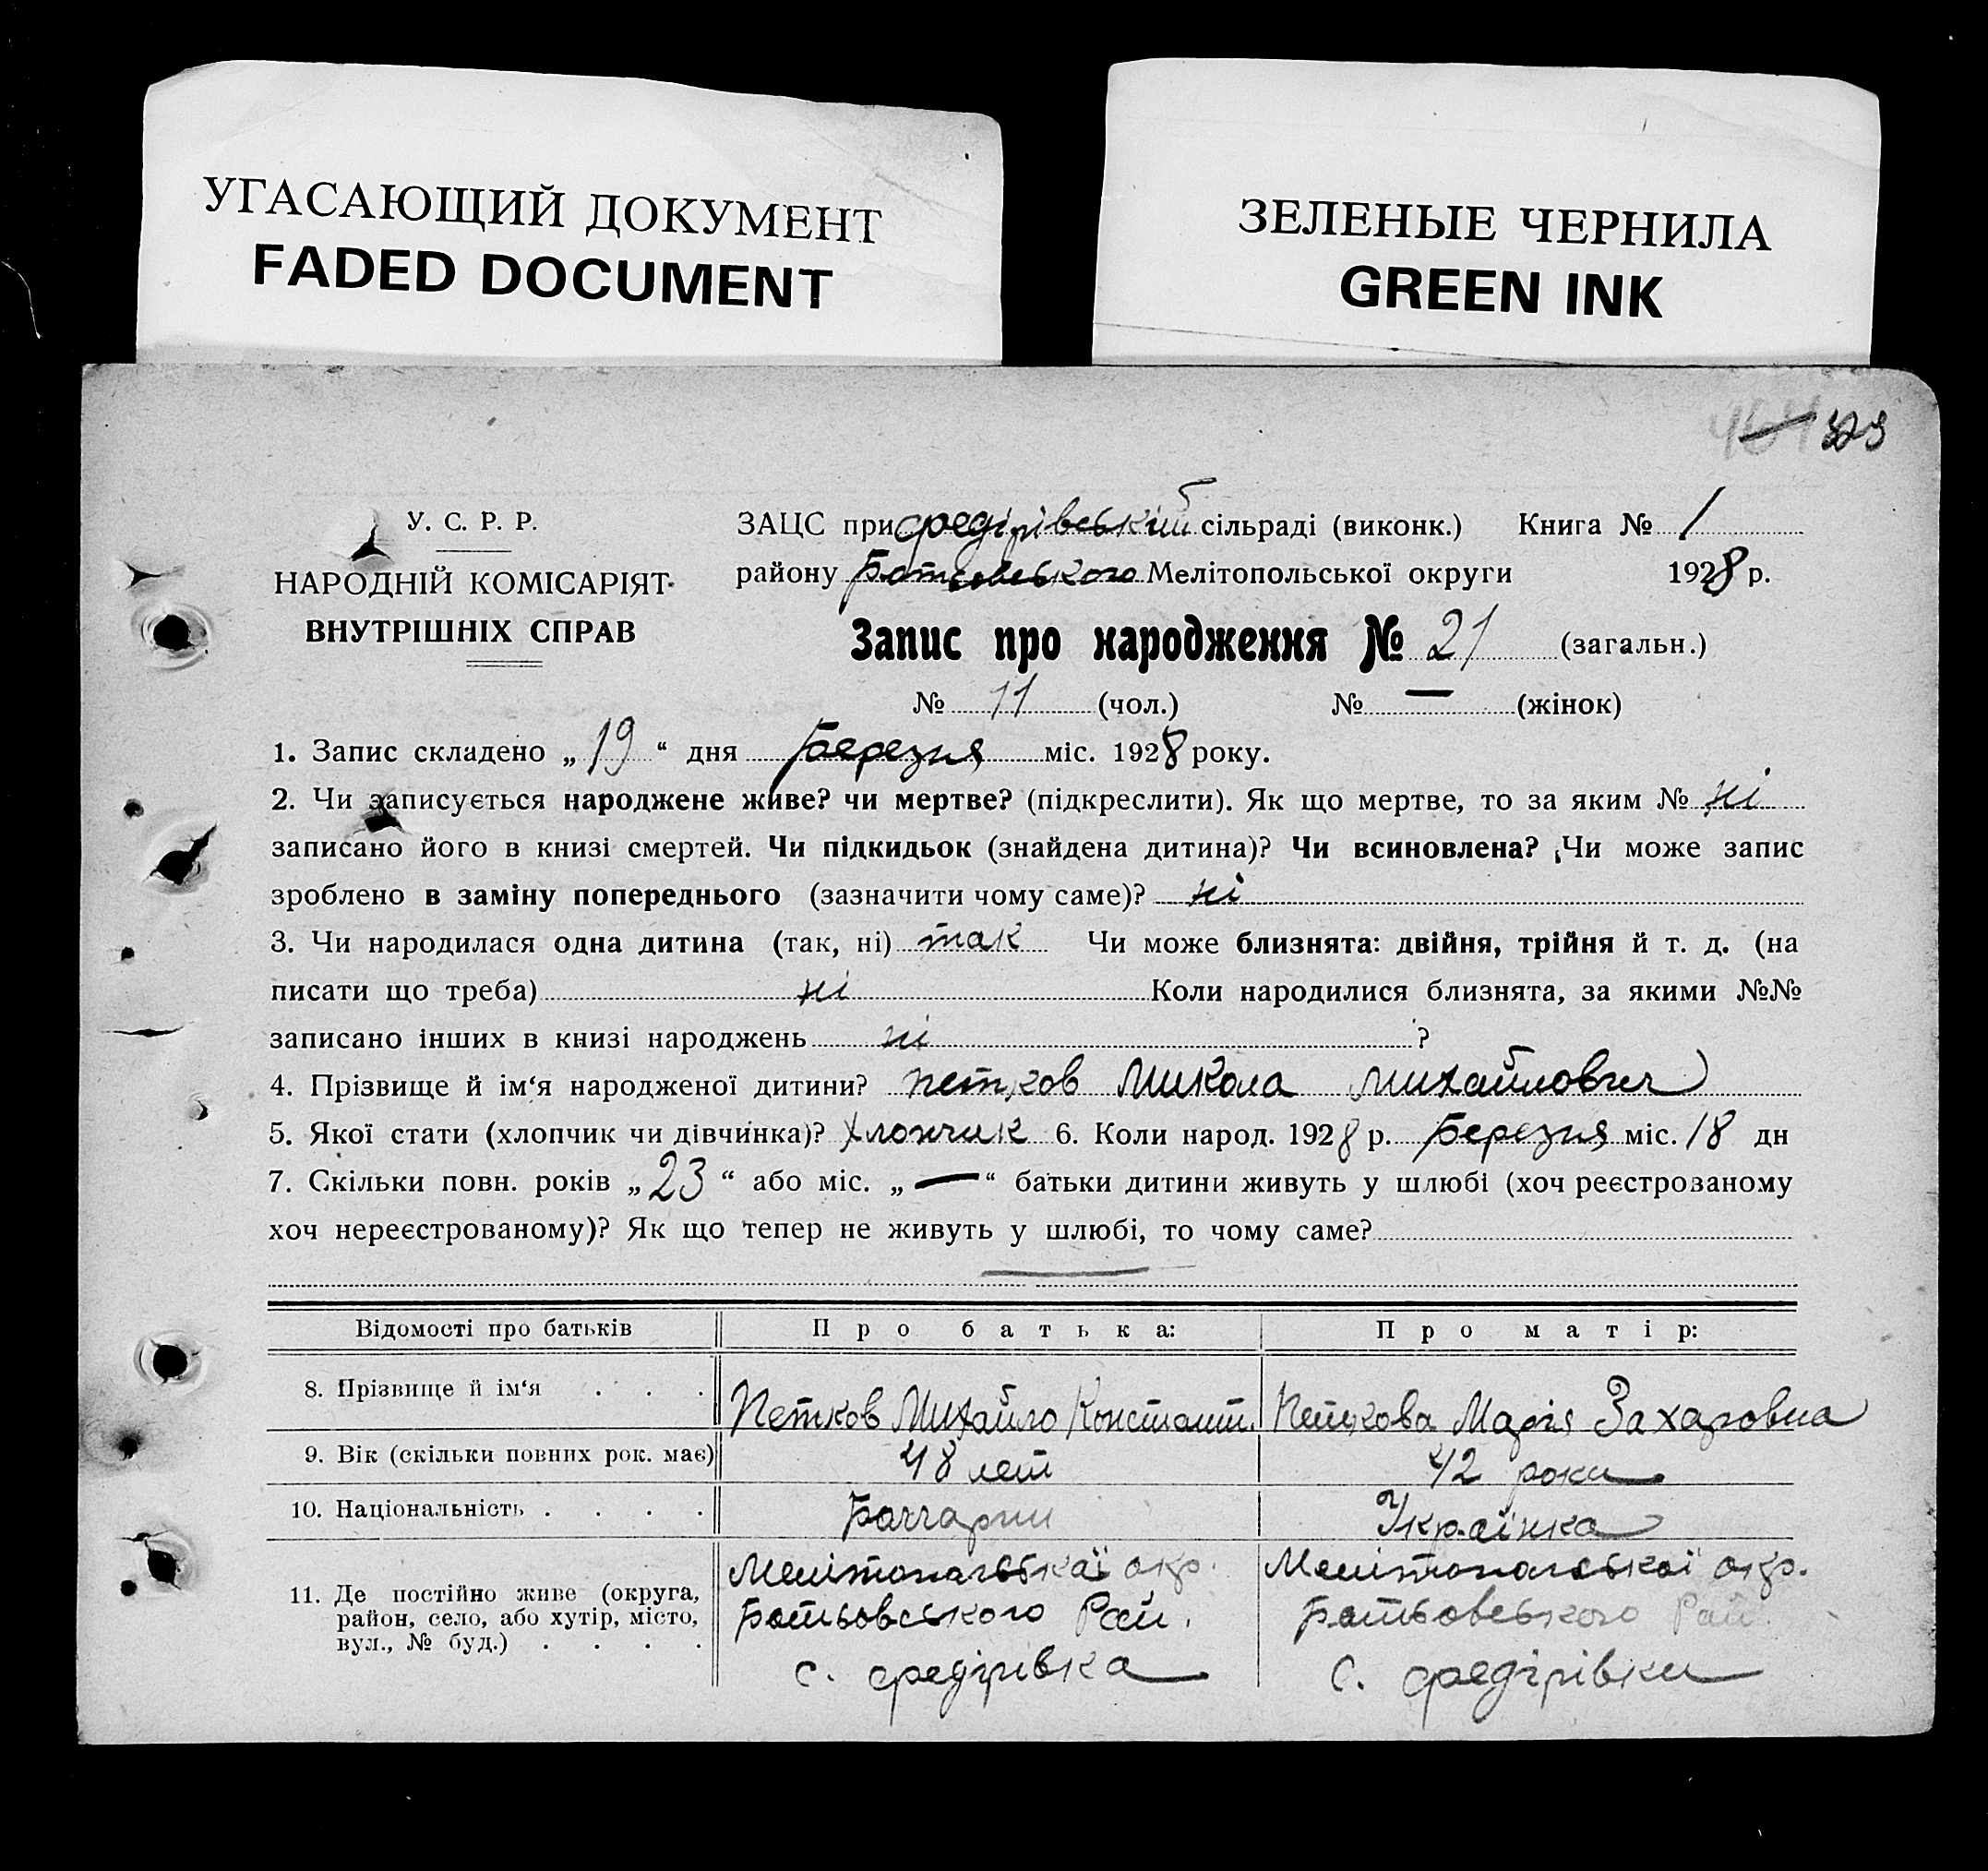 УГАСАЮЩИЙ ДОКУМЕНТ
FADED DOCUMENT
ЗЕЛЕНЫЕ ЧЕРНИЛА
GREEN INK
323
У. С. Р. Р.
НАРОДНІЙ КОМІСАРІЯТ
ВНУТРІШНІХ СПРАВ
ЗАЦС при федірівській сільраді (виконк.) Книга № 1
району Ботьовського Мелітопольської округи 1928 р.
Запис про народження № 21 (загальн.)
№ 11 (чол.) № — (жінок)
1. Запис складено „ 19 “ дня Березня міс. 1928 року.
2. Чи записується народжене живе? чи мертве? (підкреслити). Як що мертве, то за яким № ні
записано його в книзі смертей. Чи підкидьок (знайдена дитина)? Чи всиновлена? Чи може запис
зроблено в заміну попереднього (зазначити чому саме)? ні
3. Чи народилася одна дитина (так, ні) так Чи може близнята: двійня, трійня й т. д. (на
писати що треба) ні Коли народилися близнята, за якими №№
записано інших в книзі народжень ні ?
4. Прізвище й ім‘я народженої дитини? петков Микола Михайлович
5. Якої стати (хлопчик чи дівчинка)? хлопчик 6. Коли народ. 1928 р. Березня міс. 18 дн
7. Скільки повн. років „ 23 “ або міс. „ — “ батьки дитини живуть у шлюбі (хоч реєстрованому
хоч нереєстрованому)? Як що тепер не живуть у шлюбі, то чому саме?
Відомості про батьків Про батька: Про матір:
8. Прізвище й ім‘я . . . Петков Михайло Констант. Петкова Марія Захаровна
9. Вік (скільки повних рок. має) 48 лет 42 роки
10. Національність . . . . Украінка
11. Де постійно живе (округа, район, село, або хутір, місто, вул., № буд.) . . . .
Мелітопольської окр. Мелітопольської окр.
Ботьовського Рай. Ботьовського Рай.
с. федірівка с. федірівки